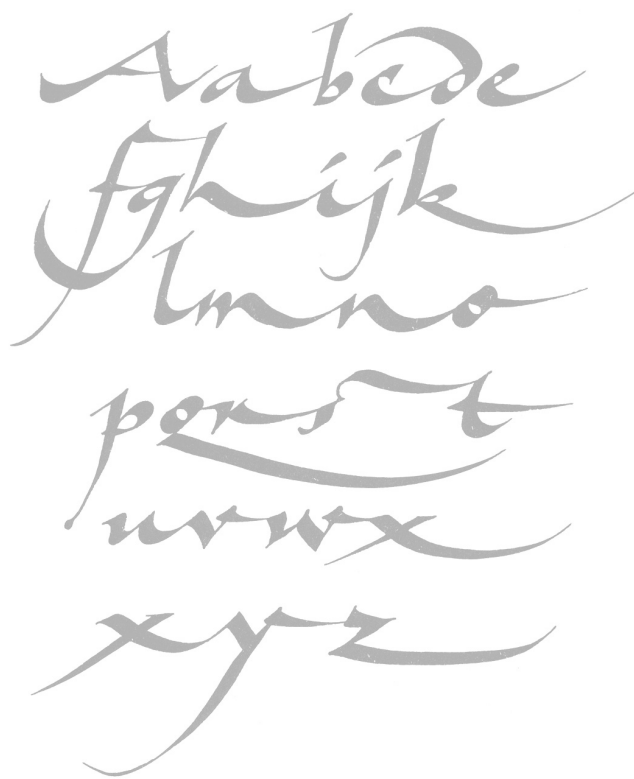 Aabcde
fghijk
lmno
pqrst
uvwx
xyz